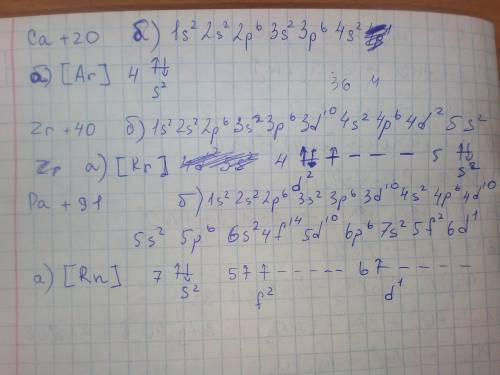 Ca +20 б) 1s² 2s² 2p⁶ 3s² 3p⁶ 4s²
а) [Ar] 4 ↑↓
s² 36 4
Zr +40 б) 1s² 2s² 2p⁶ 3s² 3p⁶ 3d¹⁰ 4s² 4p⁶ 4d² 5s²
Zr а) [Kr] 4 ↑ ↑ – – – 5 ↑↓
d² s²
Pa +91 б) 1s² 2s² 2p⁶ 3s² 3p⁶ 3d¹⁰ 4s² 4p⁶ 4d¹⁰
5s² 5p⁶ 6s² 4f¹⁴ 5d¹⁰ 6p⁶ 7s² 5f² 6d¹
а) [Rn] 7 ↑↓ 5 ↑ ↑ – – – – – 6 ↑ – – – –
s² f² d¹